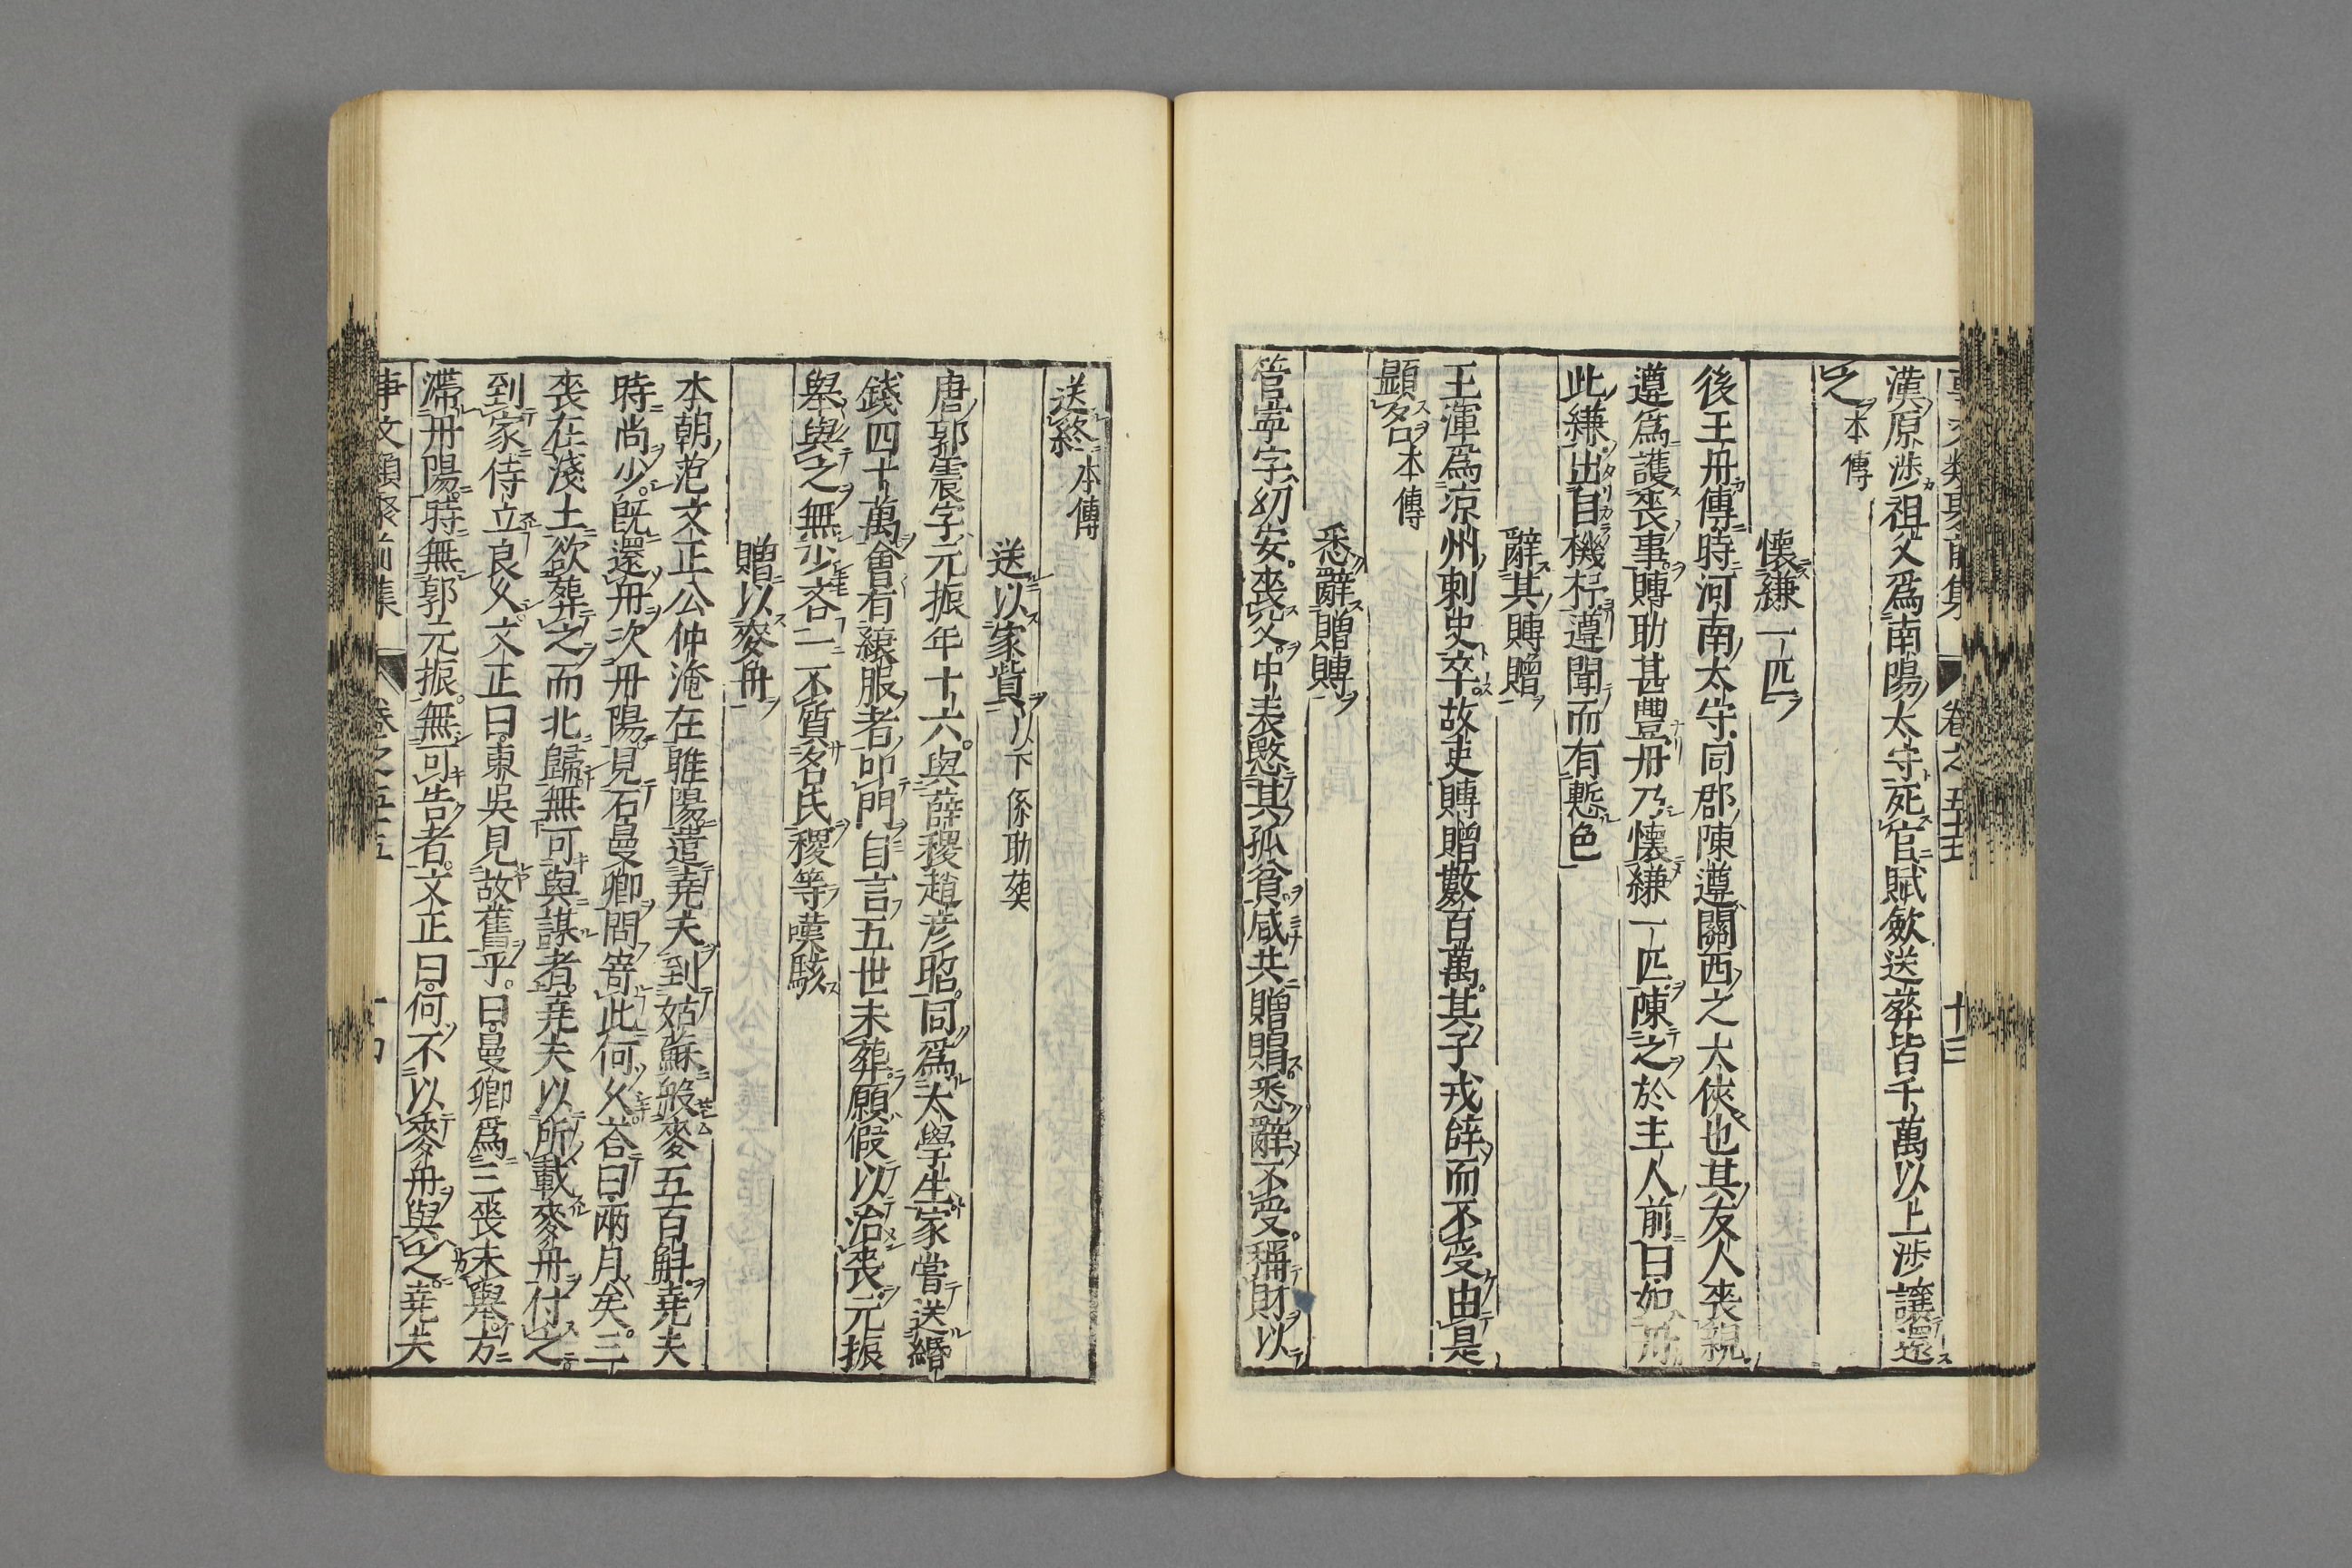 事文類聚前集 卷之五十五 十三
漢原渉祖父爲南陽太守死官賦斂送葬皆千萬以上渉讓還
之本傳
懷縑一匹
後王丹傳時河南太守同郡陳遵關西之大俠也其友人喪親
遵爲護喪事賻助甚豐丹乃懷縑一匹陳之於主人前曰如丹
此縑出自機杼遵聞而有慙色
辭其賻贈
王渾爲凉州刺史卒故吏賻贈數百萬其子戎辭而不受由是
顯名本傳
悉辭贈賻
管寧字幼安喪父中表愍其孤貧咸共贈賵悉辭不受稱財以
送終本傳
送以家貲以下係助葬
唐郭震字元振年十六與薛稷趙彦昭同爲太學生家嘗送緡
錢四十萬會有縗服者叩門自言五世未葬願假以治喪元振
舉與之無少吝一不質名氏稷等嘆駭
贈以麥舟
本朝范文正公仲淹在睢陽遣堯夫到姑蘇般麥五百斛堯夫
時尚少旣還舟次丹陽見石曼卿問寄此何久荅曰兩月矣三
喪在淺土欲葬之而北歸無可與謀者堯夫以所載麥舟付之
到家侍立良久文正曰東吳見故舊乎曰曼卿爲三喪未舉方
滯丹陽時無郭元振無可告者文正曰何不以麥舟與之堯夫
事文類聚前集 卷之五十五 十四